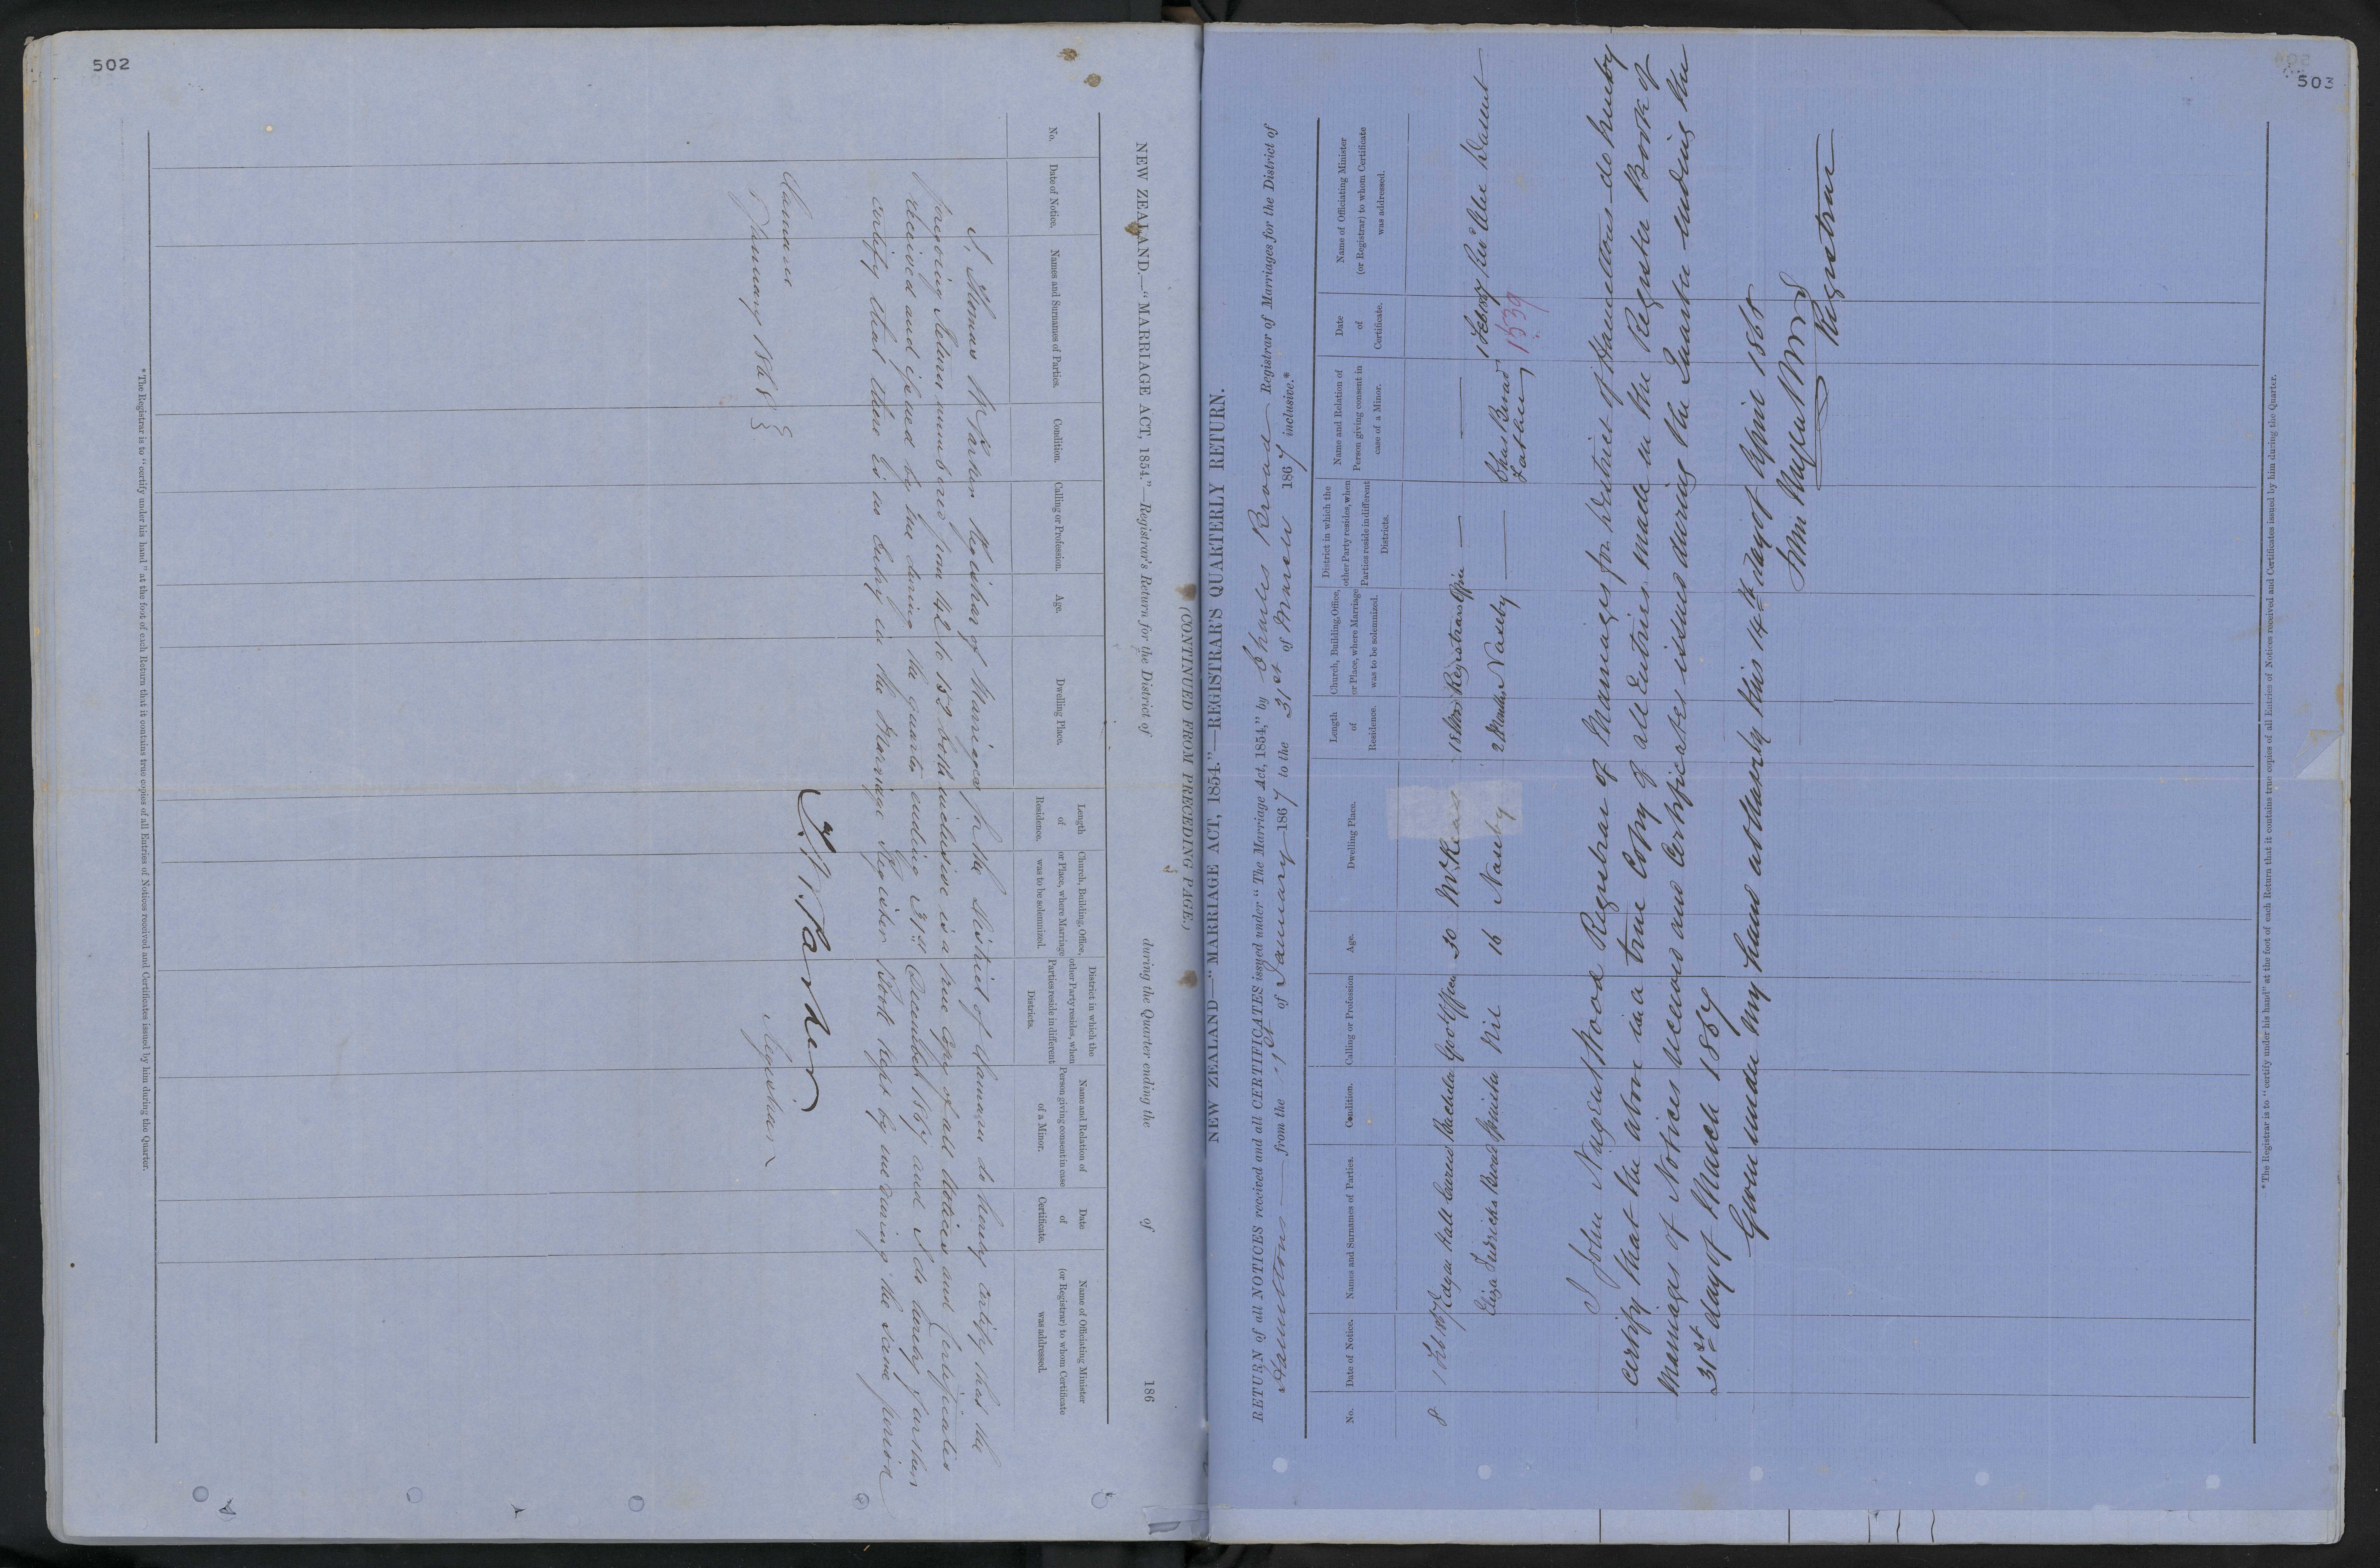 502
(CONTINUED FROM PRECEDING PAGE.)
NEW ZEALAND.—"MARRIAGE ACT, 1854."—Registrar's Return for the District of during the Quarter ending the of 186
No.
Date of Notice.
Names and Surnames of Parties.
Condition.
Calling or Profession.
Age.
Dwelling Place.
Length of Residence.
Church, Building, Office, or Place, where Marriage was to be solemnized.
District in which the other Party resides, when Parties reside in different Districts.
Name and Relation of Person giving consent in case of a Minor.
Date of Certificate.
Name of Officiating Minister (or Registrar) to whom Certificate was addressed.
I, Thomas W Parker Registrar of Marriages for the District of Oamaru do hereby certify that the
foregoing Return numbered from 142 to 152 both inclusive is a true Copy of all Notices and Certificates
received and issued by me during the quarter ending 31st December 1867 and I do hereby further
certify that there is no Entry in the Marriage Register Book kept by me during the same period
Oamaru
January 1868
T W Parker
Registrar
*The Registrar is to "certify under his hand" at the foot of each Return that it contains true copies of all Entries of Notices received and Certificates issued by him during the Quarter.
503
NEW ZEALAND—"MARRIAGE ACT, 1854."—REGISTRAR'S QUARTERLY RETURN.
RETURN of all NOTICES received and all CERTIFICATES issued under "The Marriage Act, 1854," by Charles Broad Registrar of Marriages for the District of
Hamiltons from the 1st of January 1867 to the 31st of March 1867 inclusive.*
No.
Date of Notice.
Names and Surnames of Parties.
Condition.
Calling or Profession
Age.
Dwelling Place.
Length of Residence.
Church, Building, Office, or Place, where Marriage was to be solemnized.
District in which the other Party resides, when Parties reside in different Districts.
Name and Relation of Person giving consent in case of a Minor.
Date of Certificate.
Name of Officiating Minister (or Registrar) to whom Certificate was addressed.
8 1 Feb 1867 Edgar Hall Carew Bachelor Officer 30 18 Mos Registrars Office
Eliza Broad Spinster Nil 16 Naseby 2 Months Naseby Chas Broad Father 1 Feb 1867 Rev Alex Dasent
1539
I John Nugent Wood Registrar of Marriages for District of Hamiltons do hereby
certify that the above is a true Copy of all Entries made in the Register Book of
Marriages of Notices received and Certificates issued during the Quarter ending the
31st day of March 1867
Given under my hand at this 14th day of April 1868
Jno Nugent Wood
Registrar
*The Registrar is to "certify under his hand" at the foot of each Return that it contains true copies of all Entries of Notices received and Certificates issued by him during the Quarter.